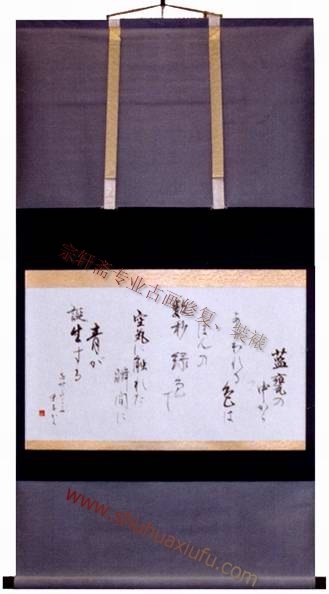 藍甕の
中から
あらわれる色は
ほんの
数秒緑色で
空気に触れた
瞬間に
青が
誕生する
宗轩斋专业古画修复、装裱
www.shuhuaxiufu.com